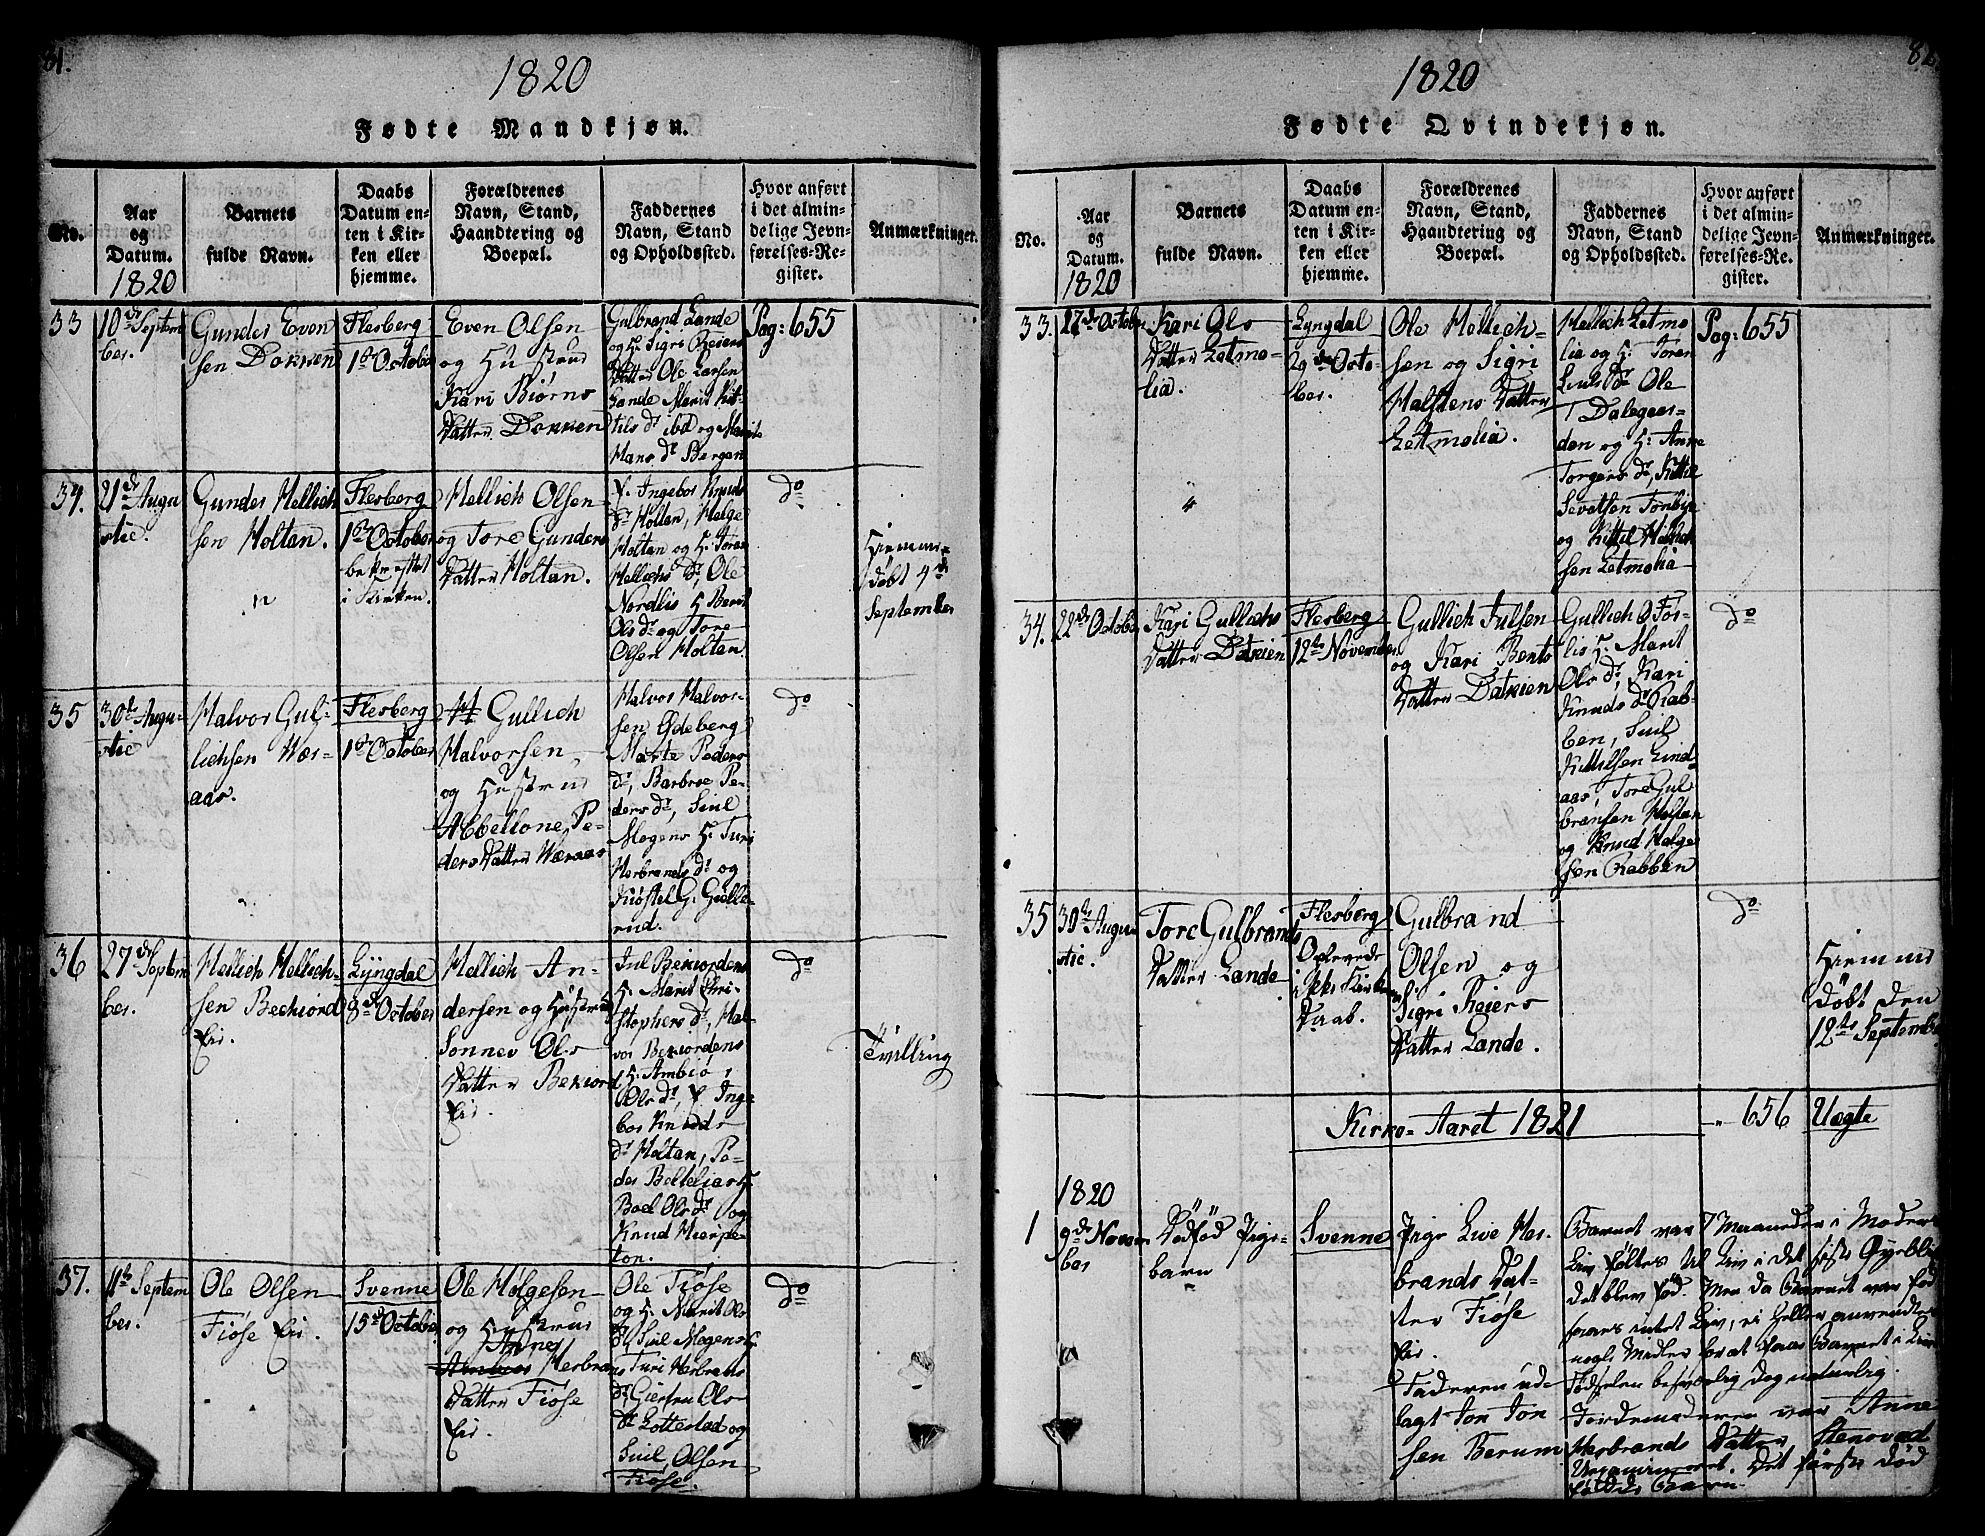 81.
1820
Fødte Mandkjøn.
No.
Aar
og
Datum.
1820
Barnets
fulde Navn.
Daabs
Datum en-
ten i Kir-
ken eller
hjemme.
Forældrenes
Navn, Stand,
Haandtering og
Boepæl.
Faddernes
Navn, Stand
og Opholdssted.
Hvor anført
i det almin-
delige Jevn-
førelses-Re-
gister.
Anmærkninger.
33
10de Septem
ber.
Gunder Even
sen Dokken
Flesberg
1ste Octobr
Even Olsen
og Hustrue
Kari Biørns
Datter Dokken
Gulbrand Lande
og H. Sigri Reiers
Datter Ole Larsen
Lande Marit Kit-
tils Dr ibd og Marit
Hans Dr Bergan
Pag: 655
34.
21de Augu
stii.
Gunder Hellich
sen Holtan.
Flesberg
1ste October
bekræftet
i Kirken.
Hellich Olsen
og Tore Gunders
Datter Holtan.
Ingebor Knuds
Dr Holtan, Helge
Holtan og H. Joran
Hellichs Dr, Ole
Nordlis H. Berit
Ols Dr og Tore
Olsen Holtan.
do
Hiemme-
døbt 4de
September
35
30te Augu-
stii
Halvor Gul-
lichsen Wær-
aas.
Flesberg
1ste October
Gullich
Halvorsen
og Hustrue
Abbellone Pe-
ders Datter Wæraas
Halvor Halvor-
sen Ødeberg
Marte Peders
Dr, Barbroe Pe-
ders Dr, Juul
Mogens H. Turi
Herbrands Dr og
Kiøstel G. Gielle-
rud.
do
36
27de Septem
ber.
Hellich Hellich-
sen Bechiord
Eir.
Lyngdal
8de October
Hellich An-
dersen og Hustrue
Sønnev Ols
Datter Bekiord
Eir.
Juel Bekiordens
H. Marit Chri-
stophers Dr, Hal-
vor Bekiordens
H. Ambio
Ols Dr, Inge-
bor Knuds
Dr Holtan, Pe-
der Belteliar H.
Boel Ols Dr og
Knud Hierpe-
ton.
do
Tvilling
37.
11te Septem
ber.
Ole Olsen
Fiøse Eir.
Svenne
15de Octobr
Ole Holgesen
og Hustrue
Agnes
Herbrans
Datter Fiøse
Eir.
Ole Fiøse
og H. Marit Ols
Dr, Juul Mogens H.
Turi Herbrans
Dr, Giertru Ols
Dr Lofterstad og
Juul Olsen
Fiøse.
do
82.
1820
Fødte Qvindekjøn.
No.
Aar
og
Datum.
1820
Barnets
fulde Navn.
Daabs
Datum en-
ten i Kir-
ken eller
hjemme.
Forældrenes
Navn, Stand,
Haandtering og
Boepæl.
Faddernes
Navn, Stand
og Opholdssted.
Hvor anført
i det almin-
delige Jevn-
førelses-Re-
gister.
Anmærkninger.
33.
17de Octobr
Kari Ols
Datter Letmo-
lia.
Lyngdal
29de Octo-
ber.
Ole Hellich-
sen og Sigri
Halstens Datter
Letmolia.
Hellich Letmo
lia og H. Joran
Juuls Dr Ole
T Dalegaar-
den og H. Anne
Torgers Dr, Kittil
Sevatsen Tonbye
og Kittil Hellich
sen Letmolia
Pag: 655
34.
22de Octobr
Kari Gullichs
Datter Datkien
Flesberg
12te November
Gullich Juulsen
og Kari Bents
Datter Datkien
Gullich O For-
lis H. Marit
Ols Dr, Kari
Knuds Dr Rab-
ben, Juul
Kittilsen Lind-
aas, Tore Gul
bransen Holtan
og Knud Halge
sen Rabben
do
35
30te Augu-
stii.
Tore Gulbrands
Datter Lande
Flesberg
Oplevede
ikke Kirken
Daab.
Gulbrand
Olsen og
Sigri Reiers
Datter Lande.
do
Hiemme
døbt den
12te September
Kirke-Aaret 1821
656
Uægte
1
1820
9de Novem
ber
Dødfød Pige-
barn
Svenne
Pige Live Her-
brands Dat-
ter Fiøse
Eir.
Faderen ud-
lagt Jon Jon
sen Berum
Barnet var 7 Maaneder i Moders
Liv følte til Liv i det sidste Øyeblik
det blev fød. Men da Barnet var fød
fandtes intet Liv, ei heller anvendtes
nogle Midler
Fødselen besværlig dog naturlig.
Jordemoderen var Anne
Herbrands Datter Stensrud
Det første død
fødde Barn.